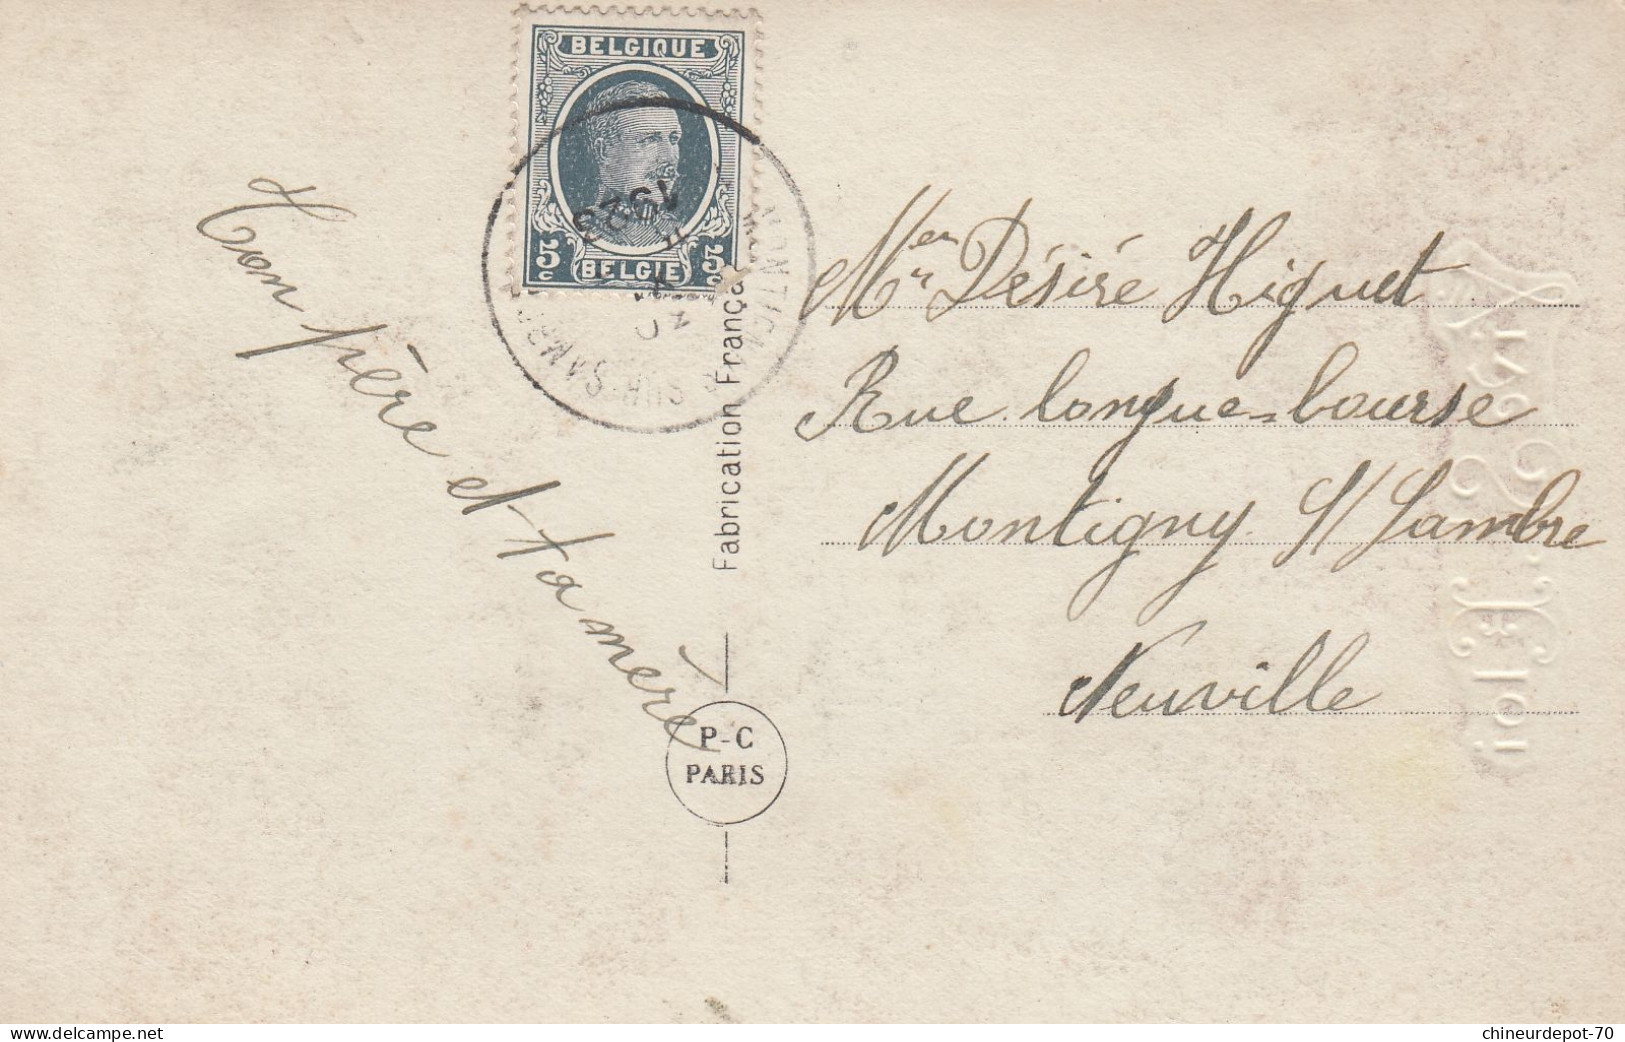 BELGIQUE
5c 5c
BELGIE
1923
SUR-SAMBRE
Ton père et ta mère
Fabrication Françai
P-C
PARIS
Mr en Désiré Higuet
Rue longue-bourse
Montigny S/Sambre
Neuville
www.delcampe.net
chineurdepot-70